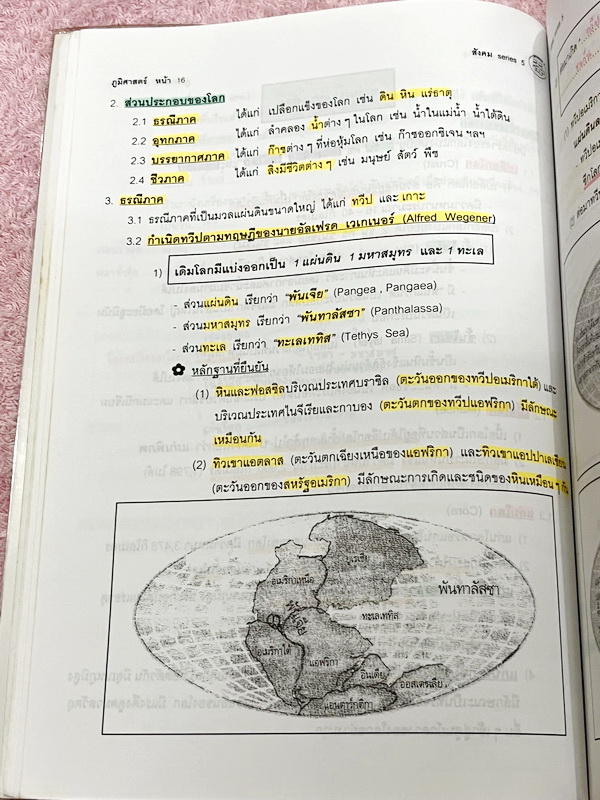 สังคม series 5
ภูมิศาสตร์ หน้า 16
2. ส่วนประกอบของโลก
2.1 ธรณีภาค ได้แก่ เปลือกแข็งของโลก เช่น ดิน หิน แร่ธาตุ
2.2 อุทกภาค ได้แก่ ลำคลอง น้ำต่าง ๆ ในโลก เช่น น้ำในแม่น้ำ น้ำใต้ดิน
2.3 บรรยากาศภาค ได้แก่ ก๊าซต่าง ๆ ที่ห่อหุ้มโลก เช่น ก๊าซออกซิเจน ฯลฯ
2.4 ชีวภาค ได้แก่ สิ่งมีชีวิตต่าง ๆ เช่น มนุษย์ สัตว์ พืช
3. ธรณีภาค
3.1 ธรณีภาคที่เป็นมวลแผ่นดินขนาดใหญ่ ได้แก่ ทวีป และ เกาะ
3.2 กำเนิดทวีปตามทฤษฎีของนายอัลเฟรด เวเกเนอร์ (Alfred Wegener)
1) เดิมโลกมีแบ่งออกเป็น 1 แผ่นดิน 1 มหาสมุทร และ 1 ทะเล
- ส่วนแผ่นดิน เรียกว่า "พันเจีย" (Pangea , Pangaea)
- ส่วนมหาสมุทร เรียกว่า "พันทาลัสซา" (Panthalassa)
- ส่วนทะเล เรียกว่า "ทะเลเททิส" (Tethys Sea)
หลักฐานที่ยืนยัน
(1) หินและฟอสซิลบริเวณประเทศบราซิล (ตะวันออกของทวีปอเมริกาใต้) และ
บริเวณประเทศไนจีเรียและกาบอง (ตะวันตกของทวีปแอฟริกา) มีลักษณะ
เหมือนกัน
(2) ทิวเขาแอตลาส (ตะวันตกเฉียงเหนือของแอฟริกา) และทิวเขาแอปปาเลเชียน
(ตะวันออกของสหรัฐอเมริกา) มีลักษณะการเกิดและชนิดของหินเหมือน ๆ กัน
ยูเรเซีย
อเมริกาเหนือ
พันทาลัสซา
พันเจีย
ทะเลเททิส
อเมริกาใต้
แอฟริกา
อินเดีย
ออสเตรเลีย
แอนตาร์กติกา